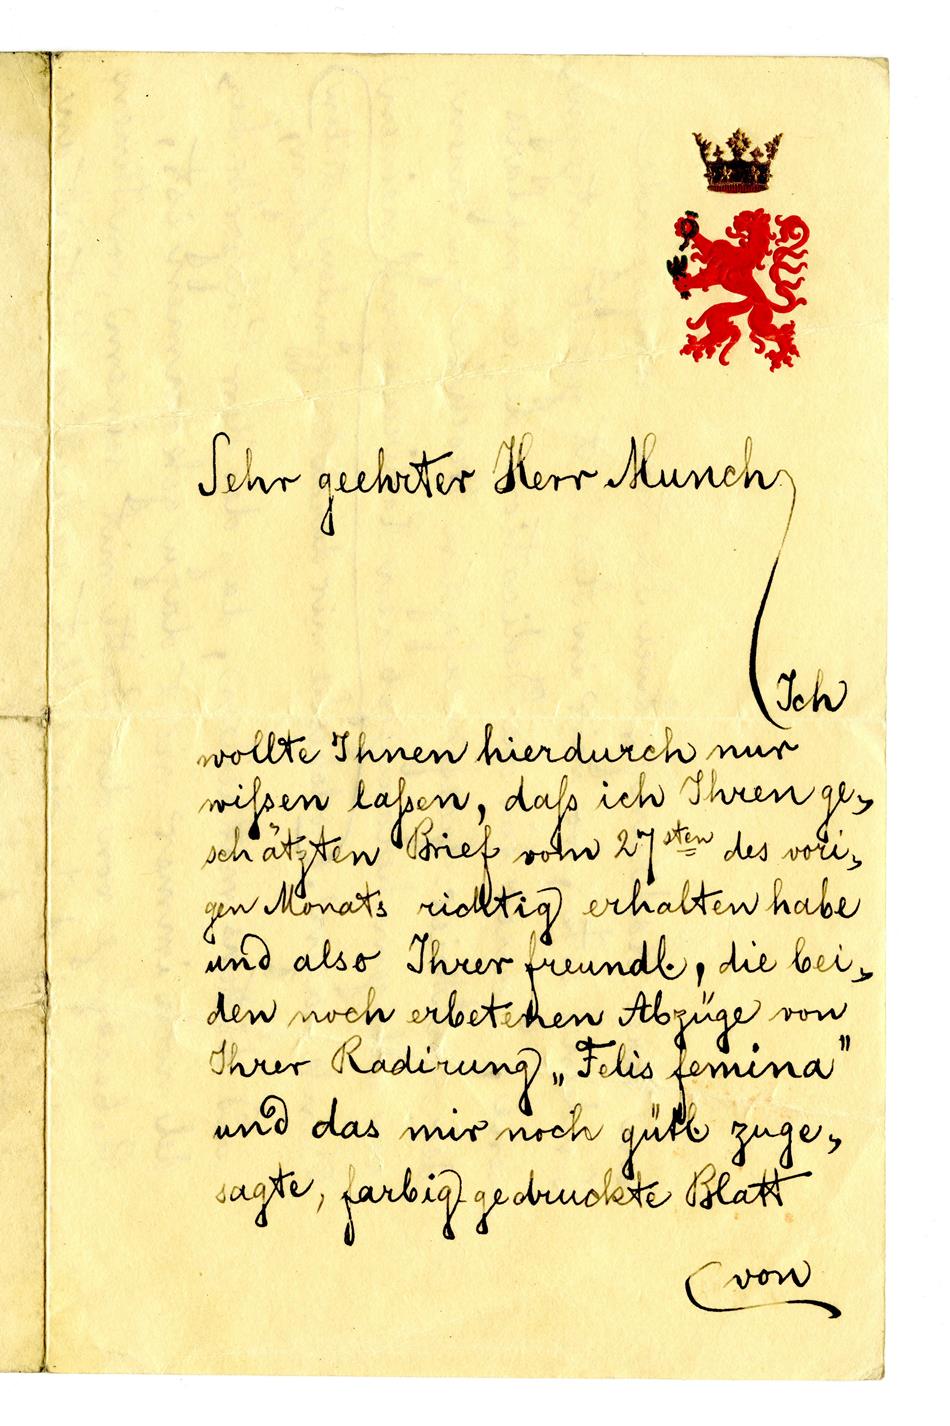 Sehr geehrter Herr Munch
Ich
wollte Ihnen hierdurch nur
wißen laßen, daß ich Ihren ge-
schätzten Brief vom 27sten des vori-
gen Monats richtig erhalten habe
und also Ihrer freundl., die bei-
den noch erbetenen Abzüge von
Ihrer Radirung „Felis femina"
und das mir noch gütl zuge-
sagte, farbig gedruckte Blatt
von